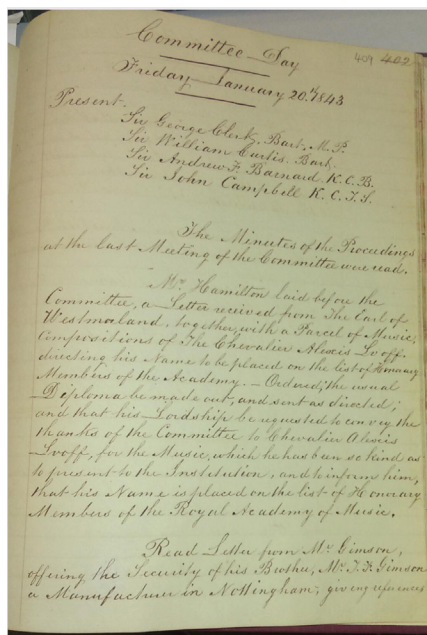 409 402
Committee Day
Friday January 20th 1843
Present.
Sir George Clerk, Bart. M.P.
Sir William Curtis. Bart.
Sir Andrew F. Barnard K.C.B.
Sir John Campbell K.C.T.S.
The Minutes of the Proceedings
at the last Meeting of the Committee were read.
Mr. Hamilton laid before the
Committee, a Letter received from The Earl of
Westmorland, together with a Parcel of Music,
Compositions of The Chevalier Alexis Lvoff.
directing his Name to be placed on the list of Honorary
Members of the Academy. – Ordered; the usual
Diploma be made out, and sent as directed;
and that his Lordship be requested to convey the
thanks of the Committee to Chevalier Alexis
Lvoff, for the Music, which he has been so kind as
to present to the Institution, and to inform him,
that his Name is placed on the list of Honorary
Members of the Royal Academy of Music.
Read Letter from Mr. Gimson,
offering the Security of his Brother, Mr. Gimson
a Manufacturer in Nottingham; giving references